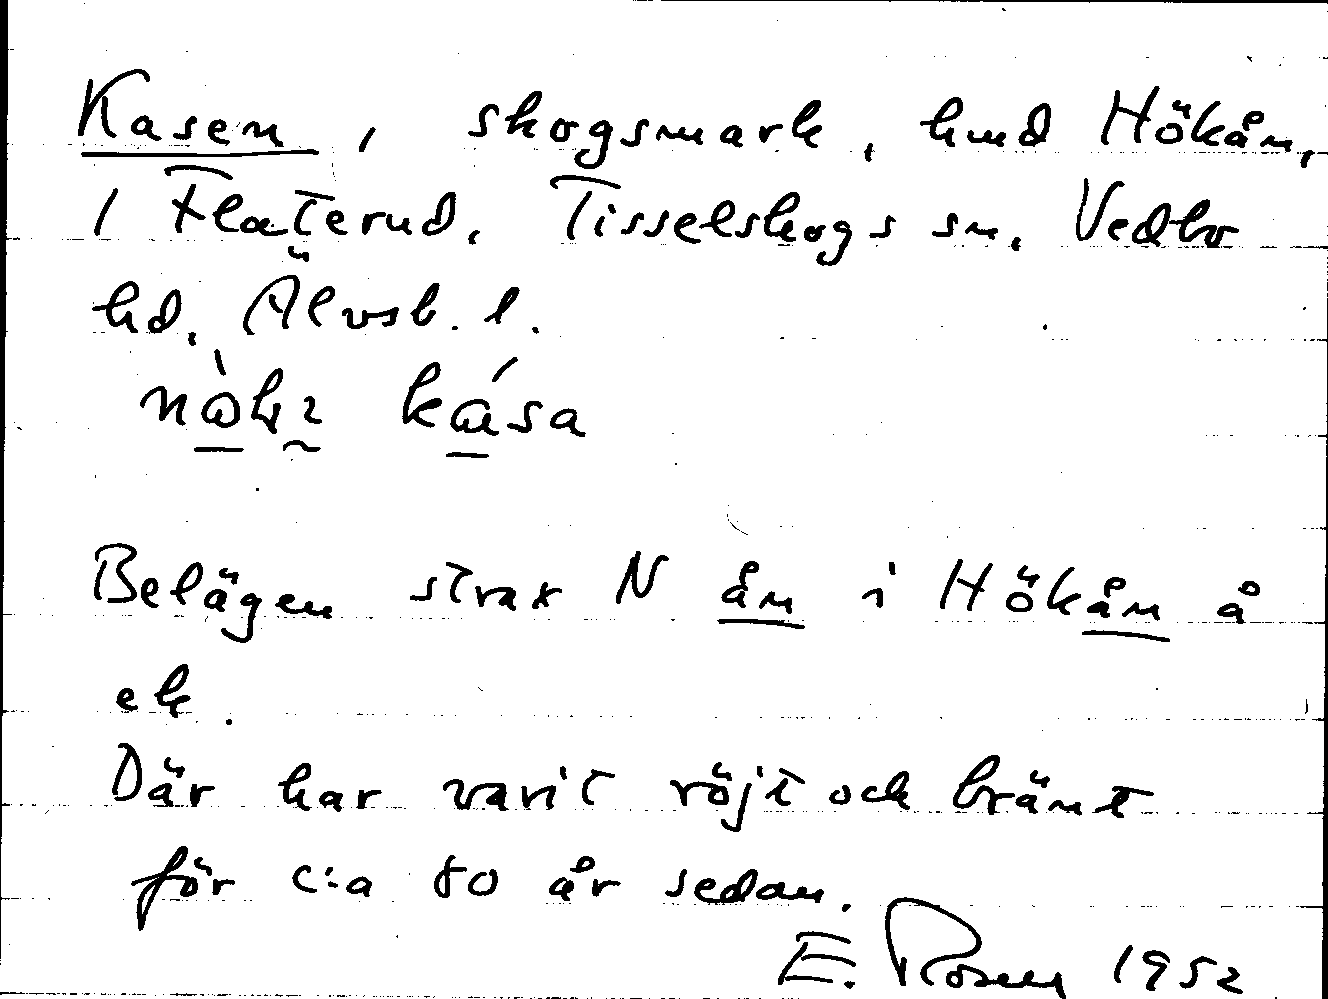 Kasen, skogsmark, hmd Hökån,
1 Flaterud, Tisselskogs sn, Vedbo
hd, Älvsb. l.
kása
Belägen strax N ån i Hökån å
ek.
Där har varit röjt och bränt
för c:a 80 år sedan.
E. Rosen 1952